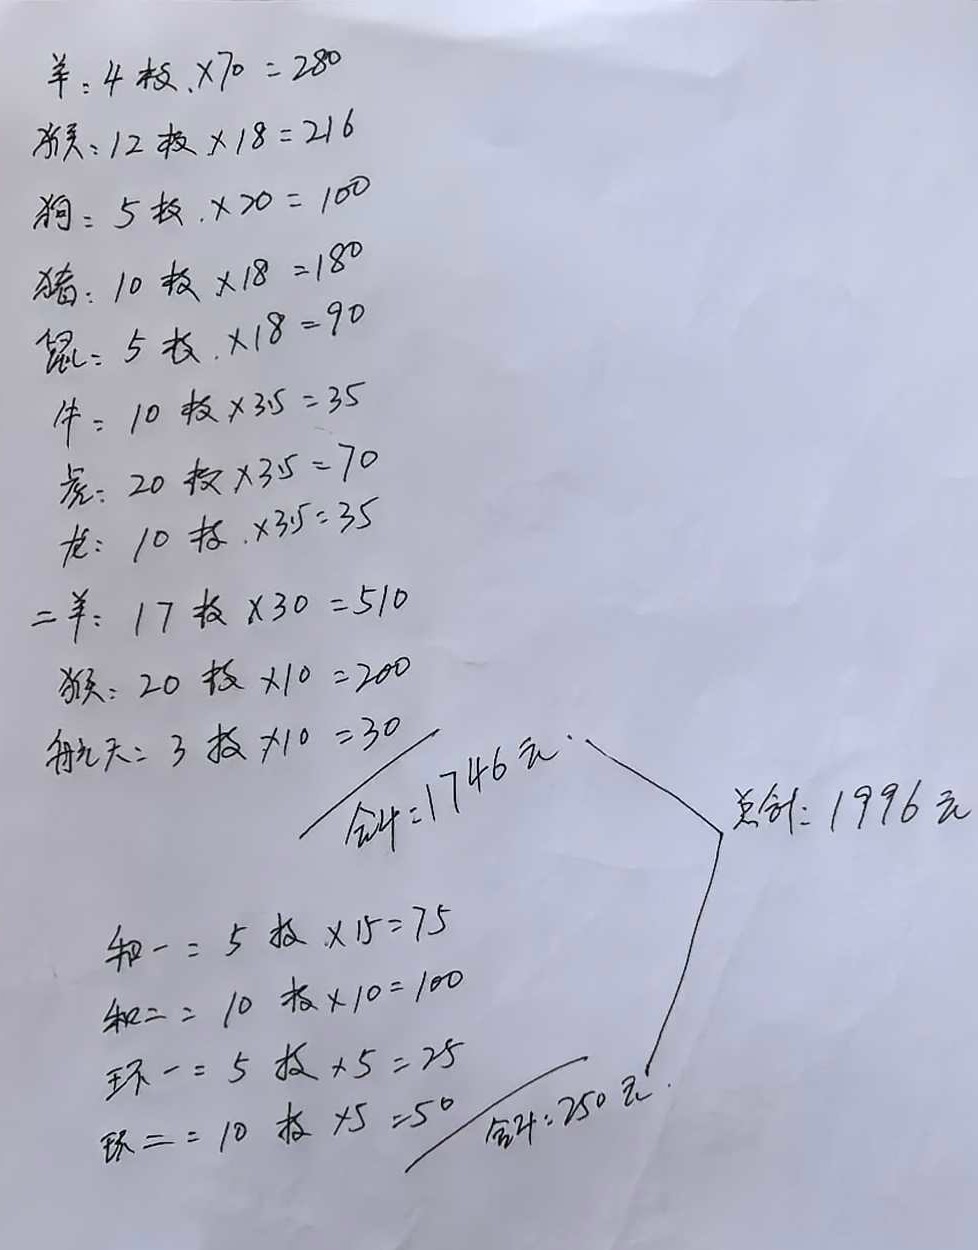 羊:4枚.×70=280
猴:12枚×18=216
狗:5枚.×20=100
猪:10枚×18=180
鼠:5枚.×18=90
牛:10枚×3.5=35
虎:20枚×3.5=70
龙:10枚.×3.5=35
二羊:17枚×30=510
猴:20枚×10=200
航天:3枚×10=30
合计:1746元.
总计:1996元
和一:5枚×15=75
和二:10枚×10=100
环一:5枚×5=25
环二:10枚×5=50
合计:250元.